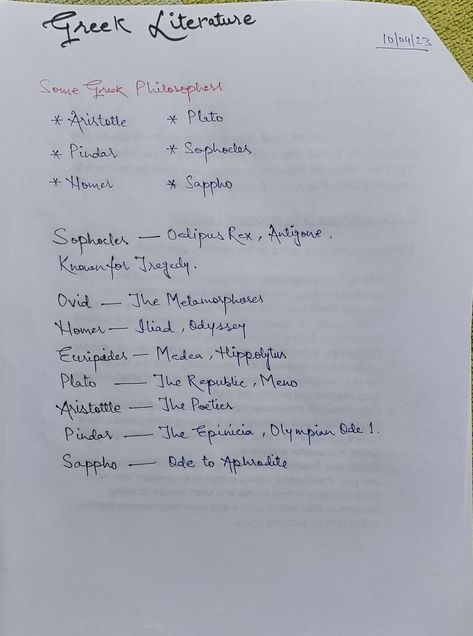 Greek Literature
10/04/23
Some Greek Philosophers
* Aristotle * Plato
* Pindar * Sophocles
* Homer * Sappho
Sophocles — Oedipus Rex, Antigone.
Known for Tregedy.
Ovid — The Metamorphoses
Homer — Iliad, Odyssey
Euripides — Medea, Hippolytus
Plato — The Republic, Meno
Aristottle — The Poetics
Pindar — The Epinicia, Olympian Ode 1.
Sappho — Ode to Aphrodite